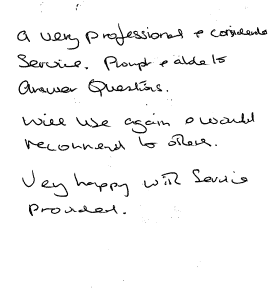 A very professional & considerate
Service. Prompt & able to
Answer Questions.
Will use again & would
recommend to others.
Very happy with Service
Provided.